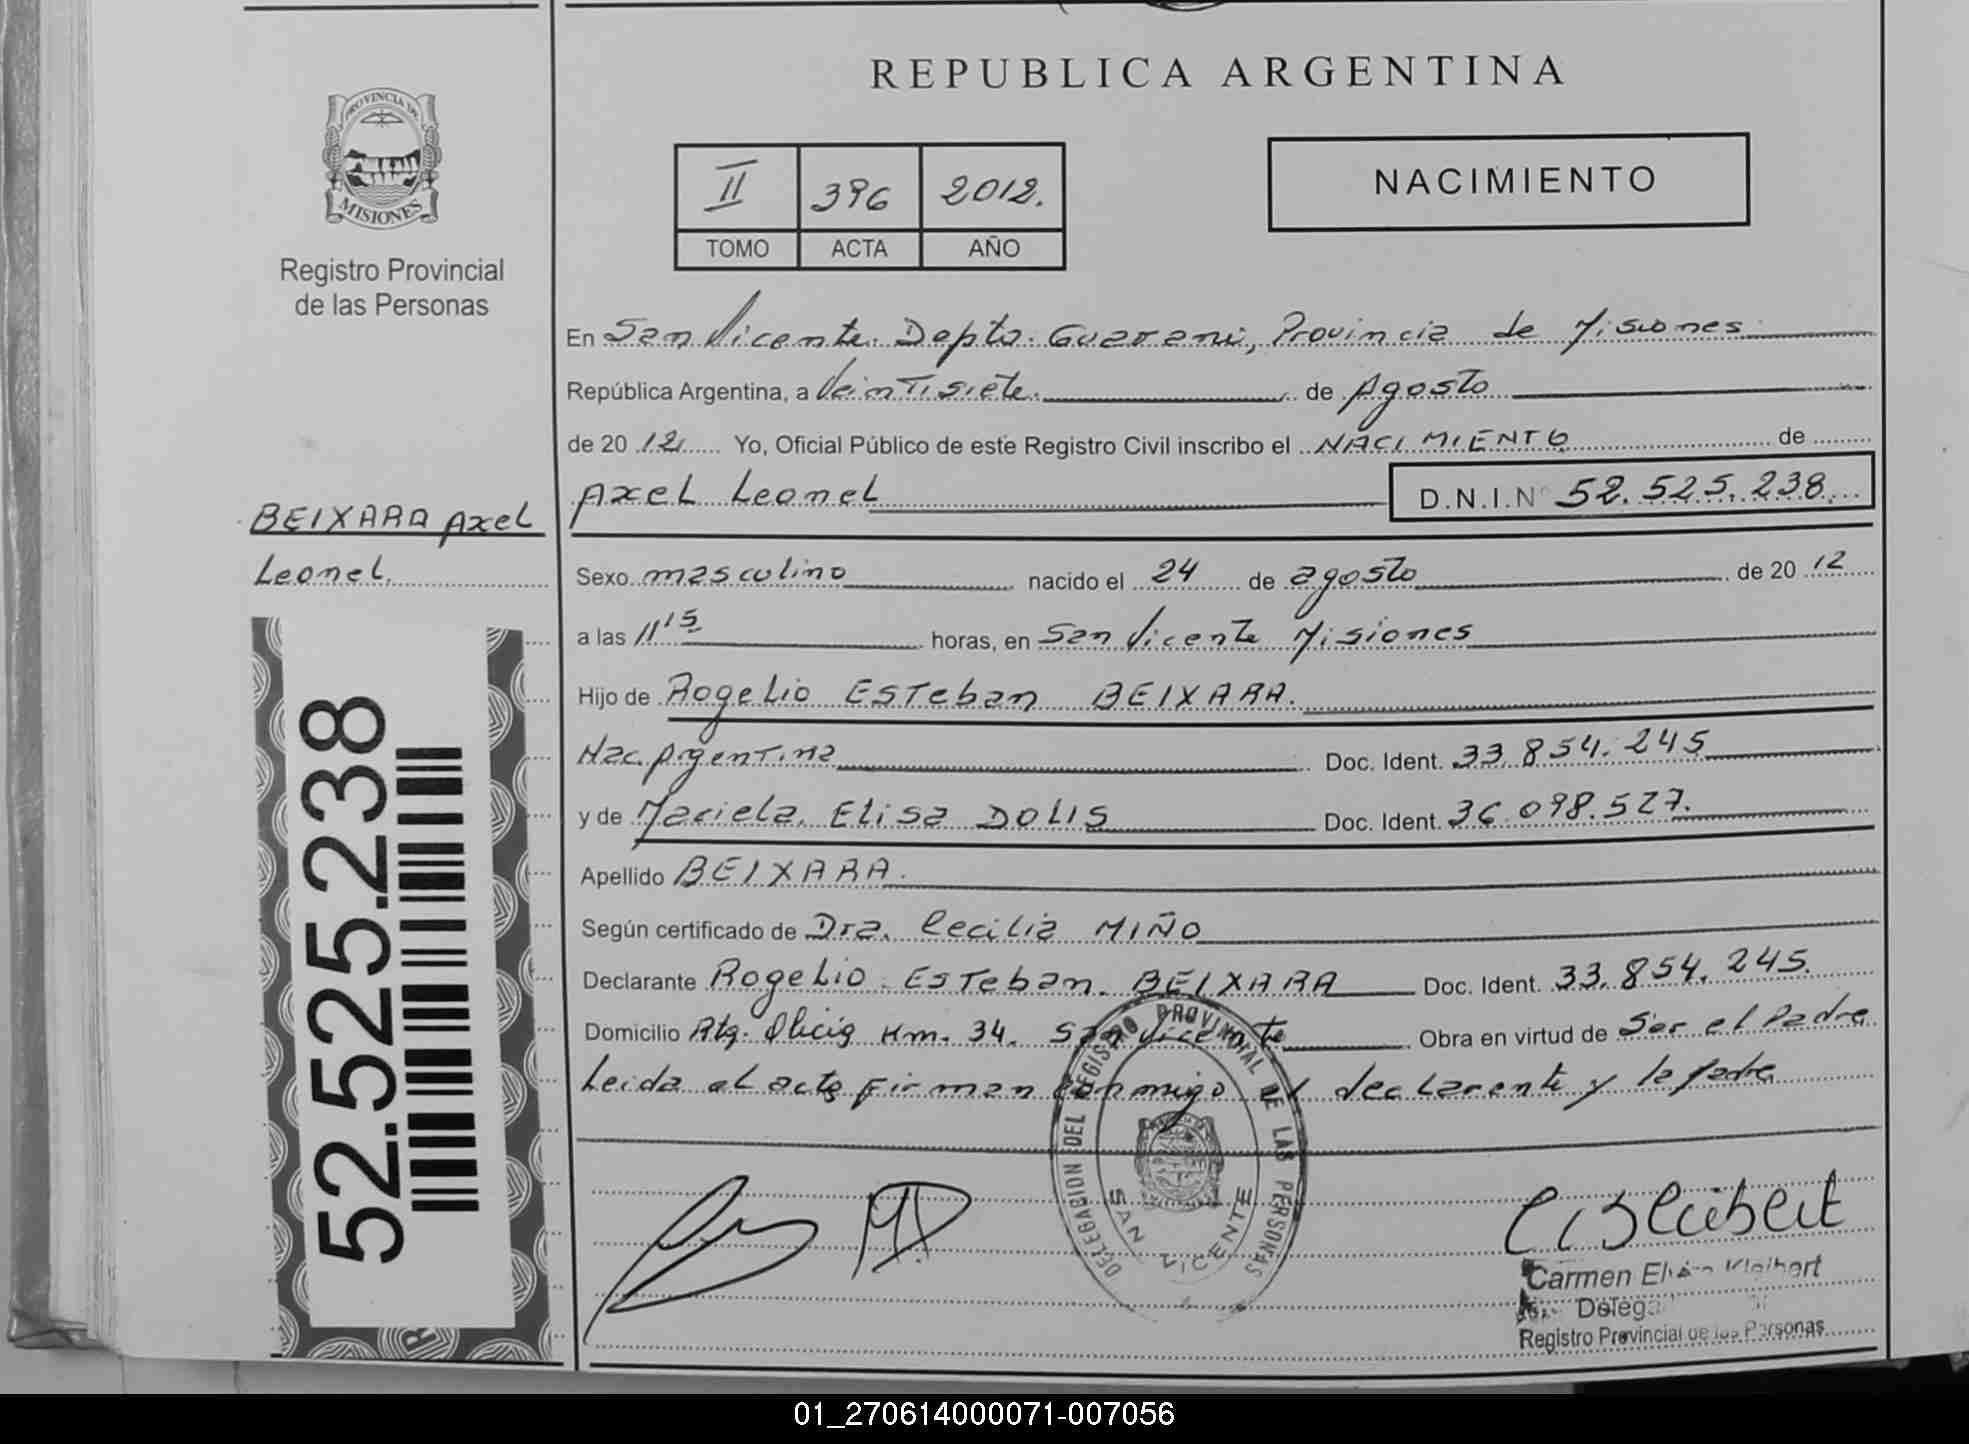 REPUBLICA ARGENTINA
PROVINCIA DE
MISIONES
Registro Provincial
de las Personas
II 396 2012.
TOMO ACTA AÑO
NACIMIENTO
En San Vicente. Depto. Guarani, Provincia de Misiones
República Argentina, a Veintisiete. de Agosto
de 20 12 Yo, Oficial Público de este Registro Civil inscribo el NACIMIENTO de
BEIXARA Axel
Leonel.
Axel Leonel D.N.I.Nº 52.525.238
Sexo masculino nacido el 24 de agosto de 20 12
a las 11 15 horas, en San Vicente Misiones
Hijo de Rogelio Esteban BEIXARA.
Nac. Argentina Doc. Ident. 33.854.245
y de Mariela Elisa DOLIS Doc. Ident. 36.098.527.
Apellido BEIXARA.
Según certificado de Dra. Cecilia MIÑO
Declarante Rogelio Esteban BEIXARA Doc. Ident. 33.854.245.
Domicilio Km. 34. San Vicente Obra en virtud de Ser el Padre
Leida el acta firman conmigo el declarante y la
52.525.238
DELEGACION DEL REGISTRO PROVINCIAL DE LAS PERSONAS
SAN VICENTE
Carmen Kleibert
Registro Provincial de las Personas
01_270614000071-007056